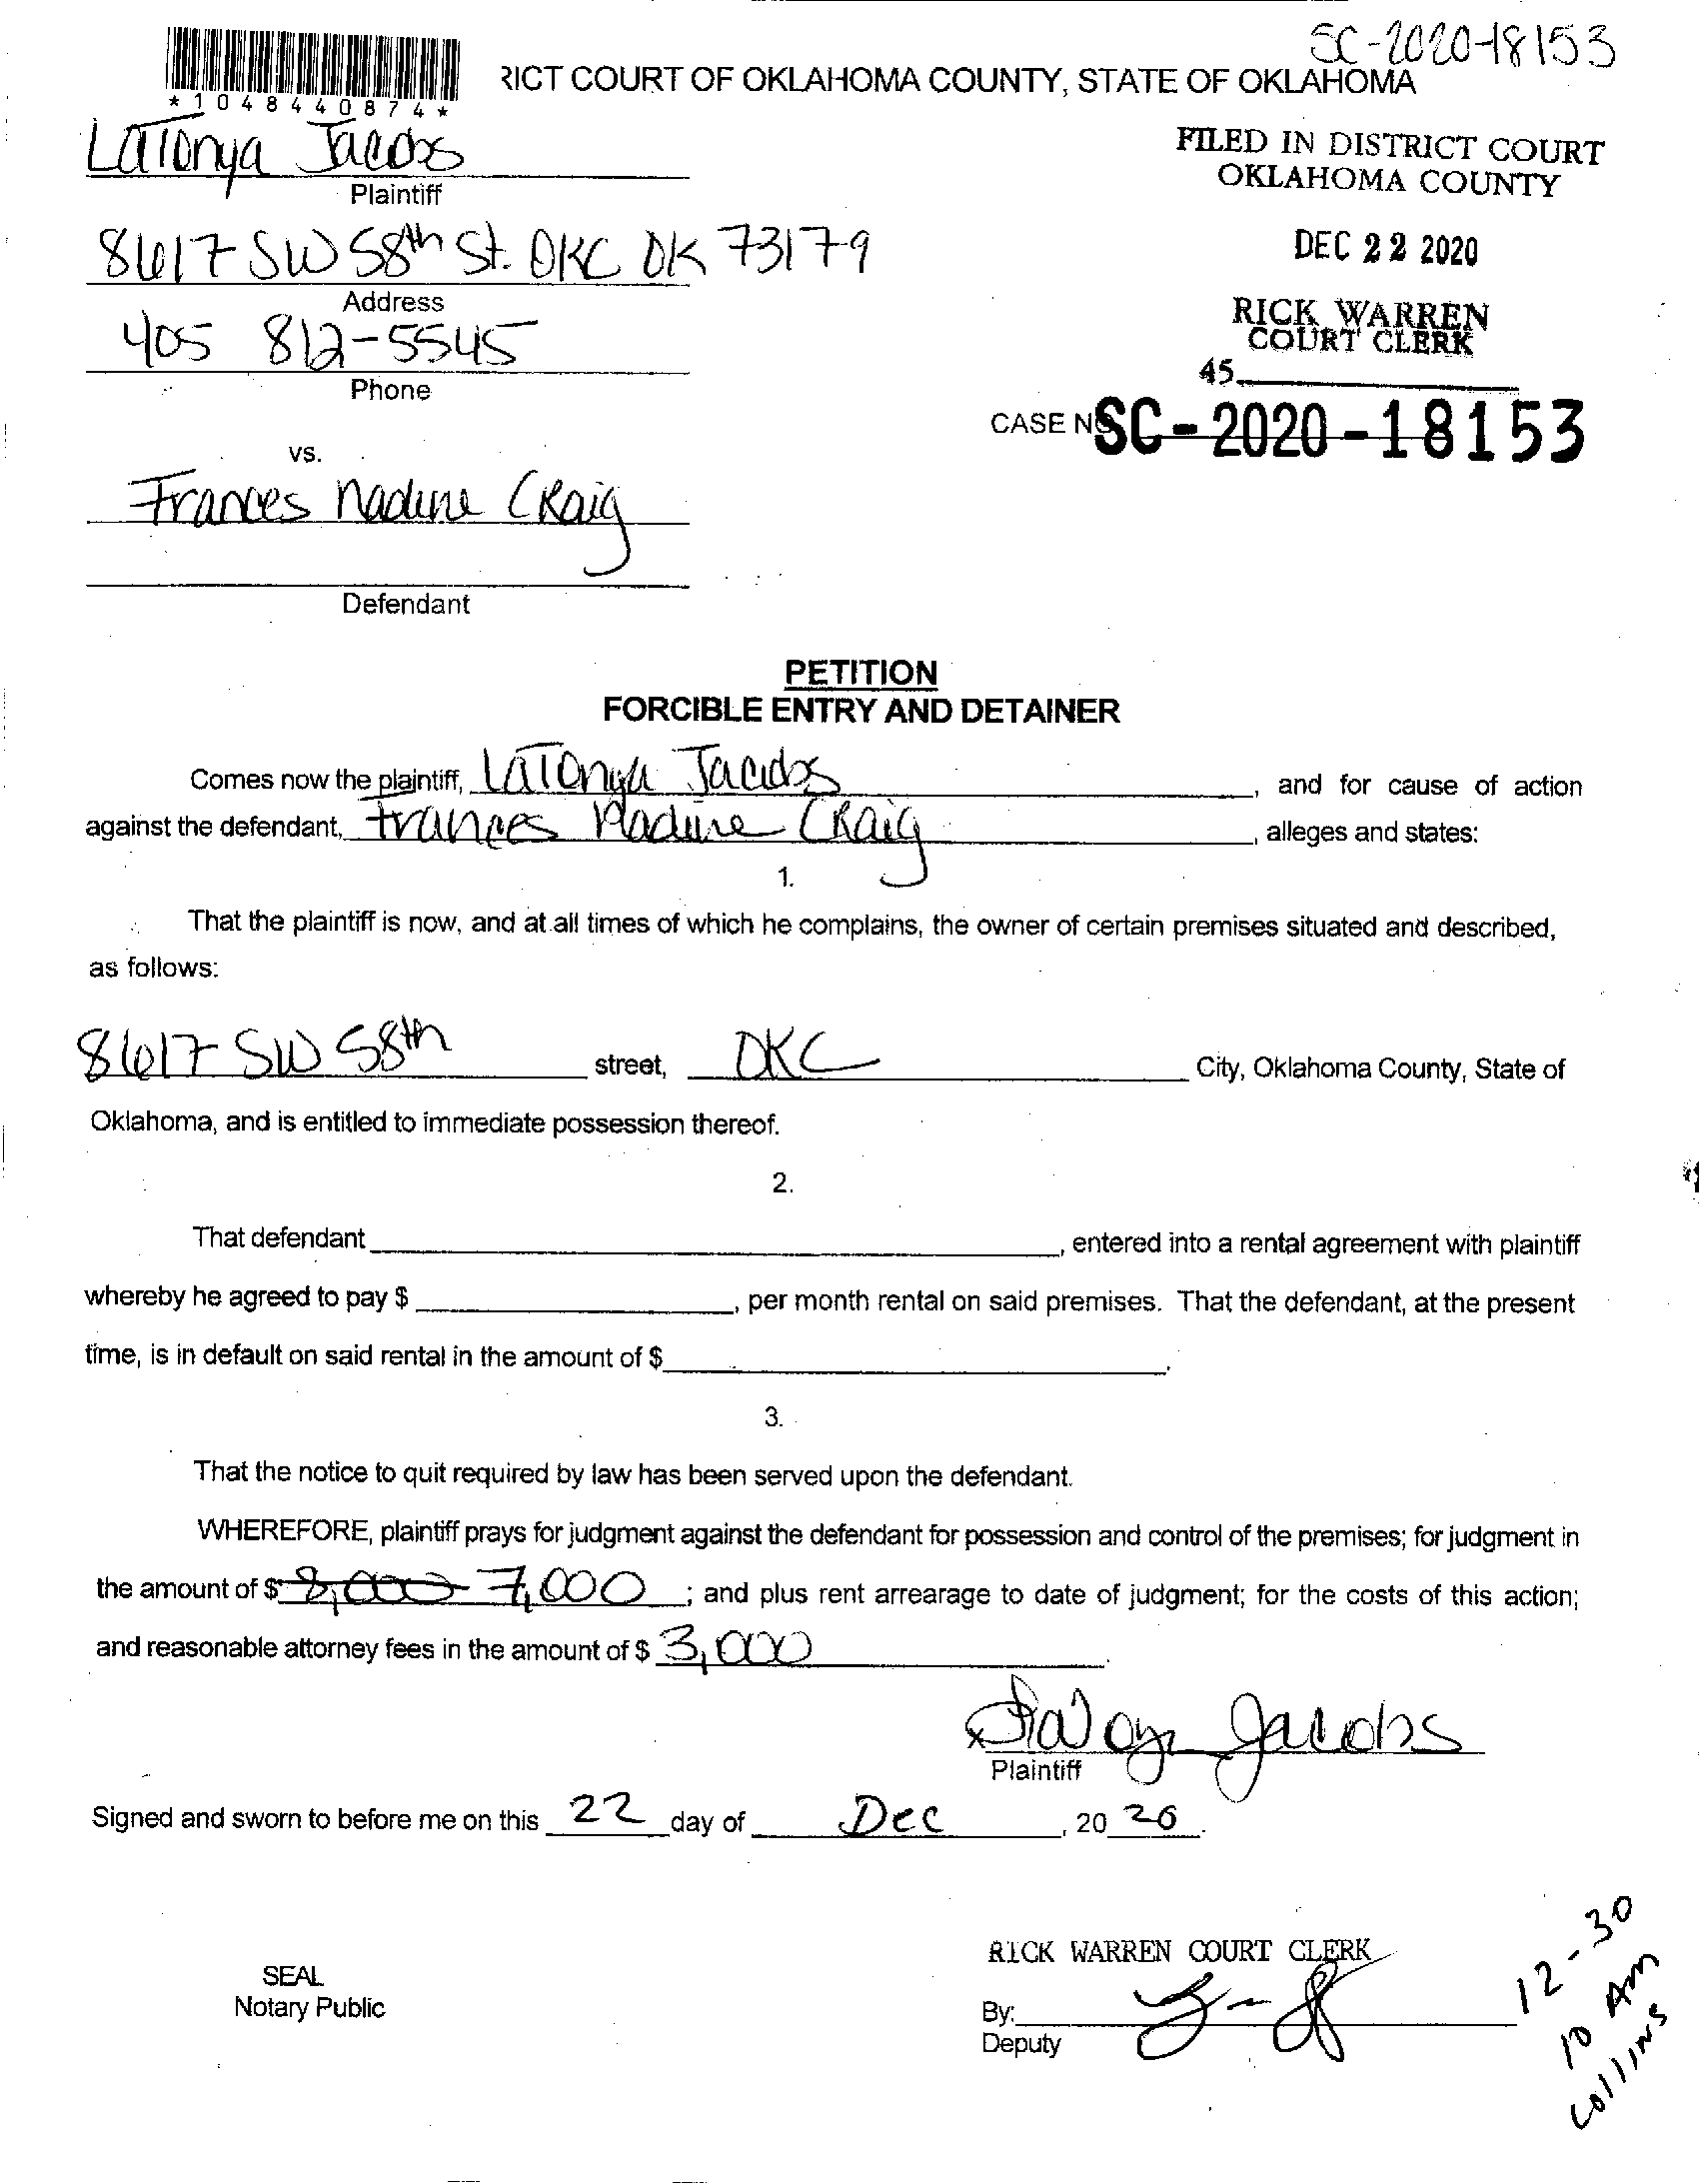 SC-2020-18153
RICT COURT OF OKLAHOMA COUNTY, STATE OF OKLAHOMA
*1048440874*
LaTonya Jacobs
Plaintiff
FILED IN DISTRICT COURT
OKLAHOMA COUNTY
8617 SW 58th St. OKC OK 73179
Address
DEC 22 2020
405 812-5545
Phone
RICK WARREN
COURT CLERK
45
CASE NO SC-2020-18153
vs.
Frances Nadine Craig
Defendant
PETITION
FORCIBLE ENTRY AND DETAINER
Comes now the plaintiff, LaTonya Jacobs, and for cause of action
against the defendant, Frances Nadine Craig, alleges and states:
1.
That the plaintiff is now, and at all times of which he complains, the owner of certain premises situated and described,
as follows:
8617 SW 58th street, OKC City, Oklahoma County, State of
Oklahoma, and is entitled to immediate possession thereof.
2.
That defendant , entered into a rental agreement with plaintiff
whereby he agreed to pay $ , per month rental on said premises. That the defendant, at the present
time, is in default on said rental in the amount of $ .
3.
That the notice to quit required by law has been served upon the defendant.
WHEREFORE, plaintiff prays for judgment against the defendant for possession and control of the premises; for judgment in
the amount of $ 8,000 7,000 ; and plus rent arrearage to date of judgment; for the costs of this action;
and reasonable attorney fees in the amount of $ 3,000.
x LaTonya Jacobs
Plaintiff
Signed and sworn to before me on this 22 day of Dec, 20 20.
RICK WARREN COURT CLERK
SEAL
Notary Public
By:
Deputy
12-30
10 AM
Collins